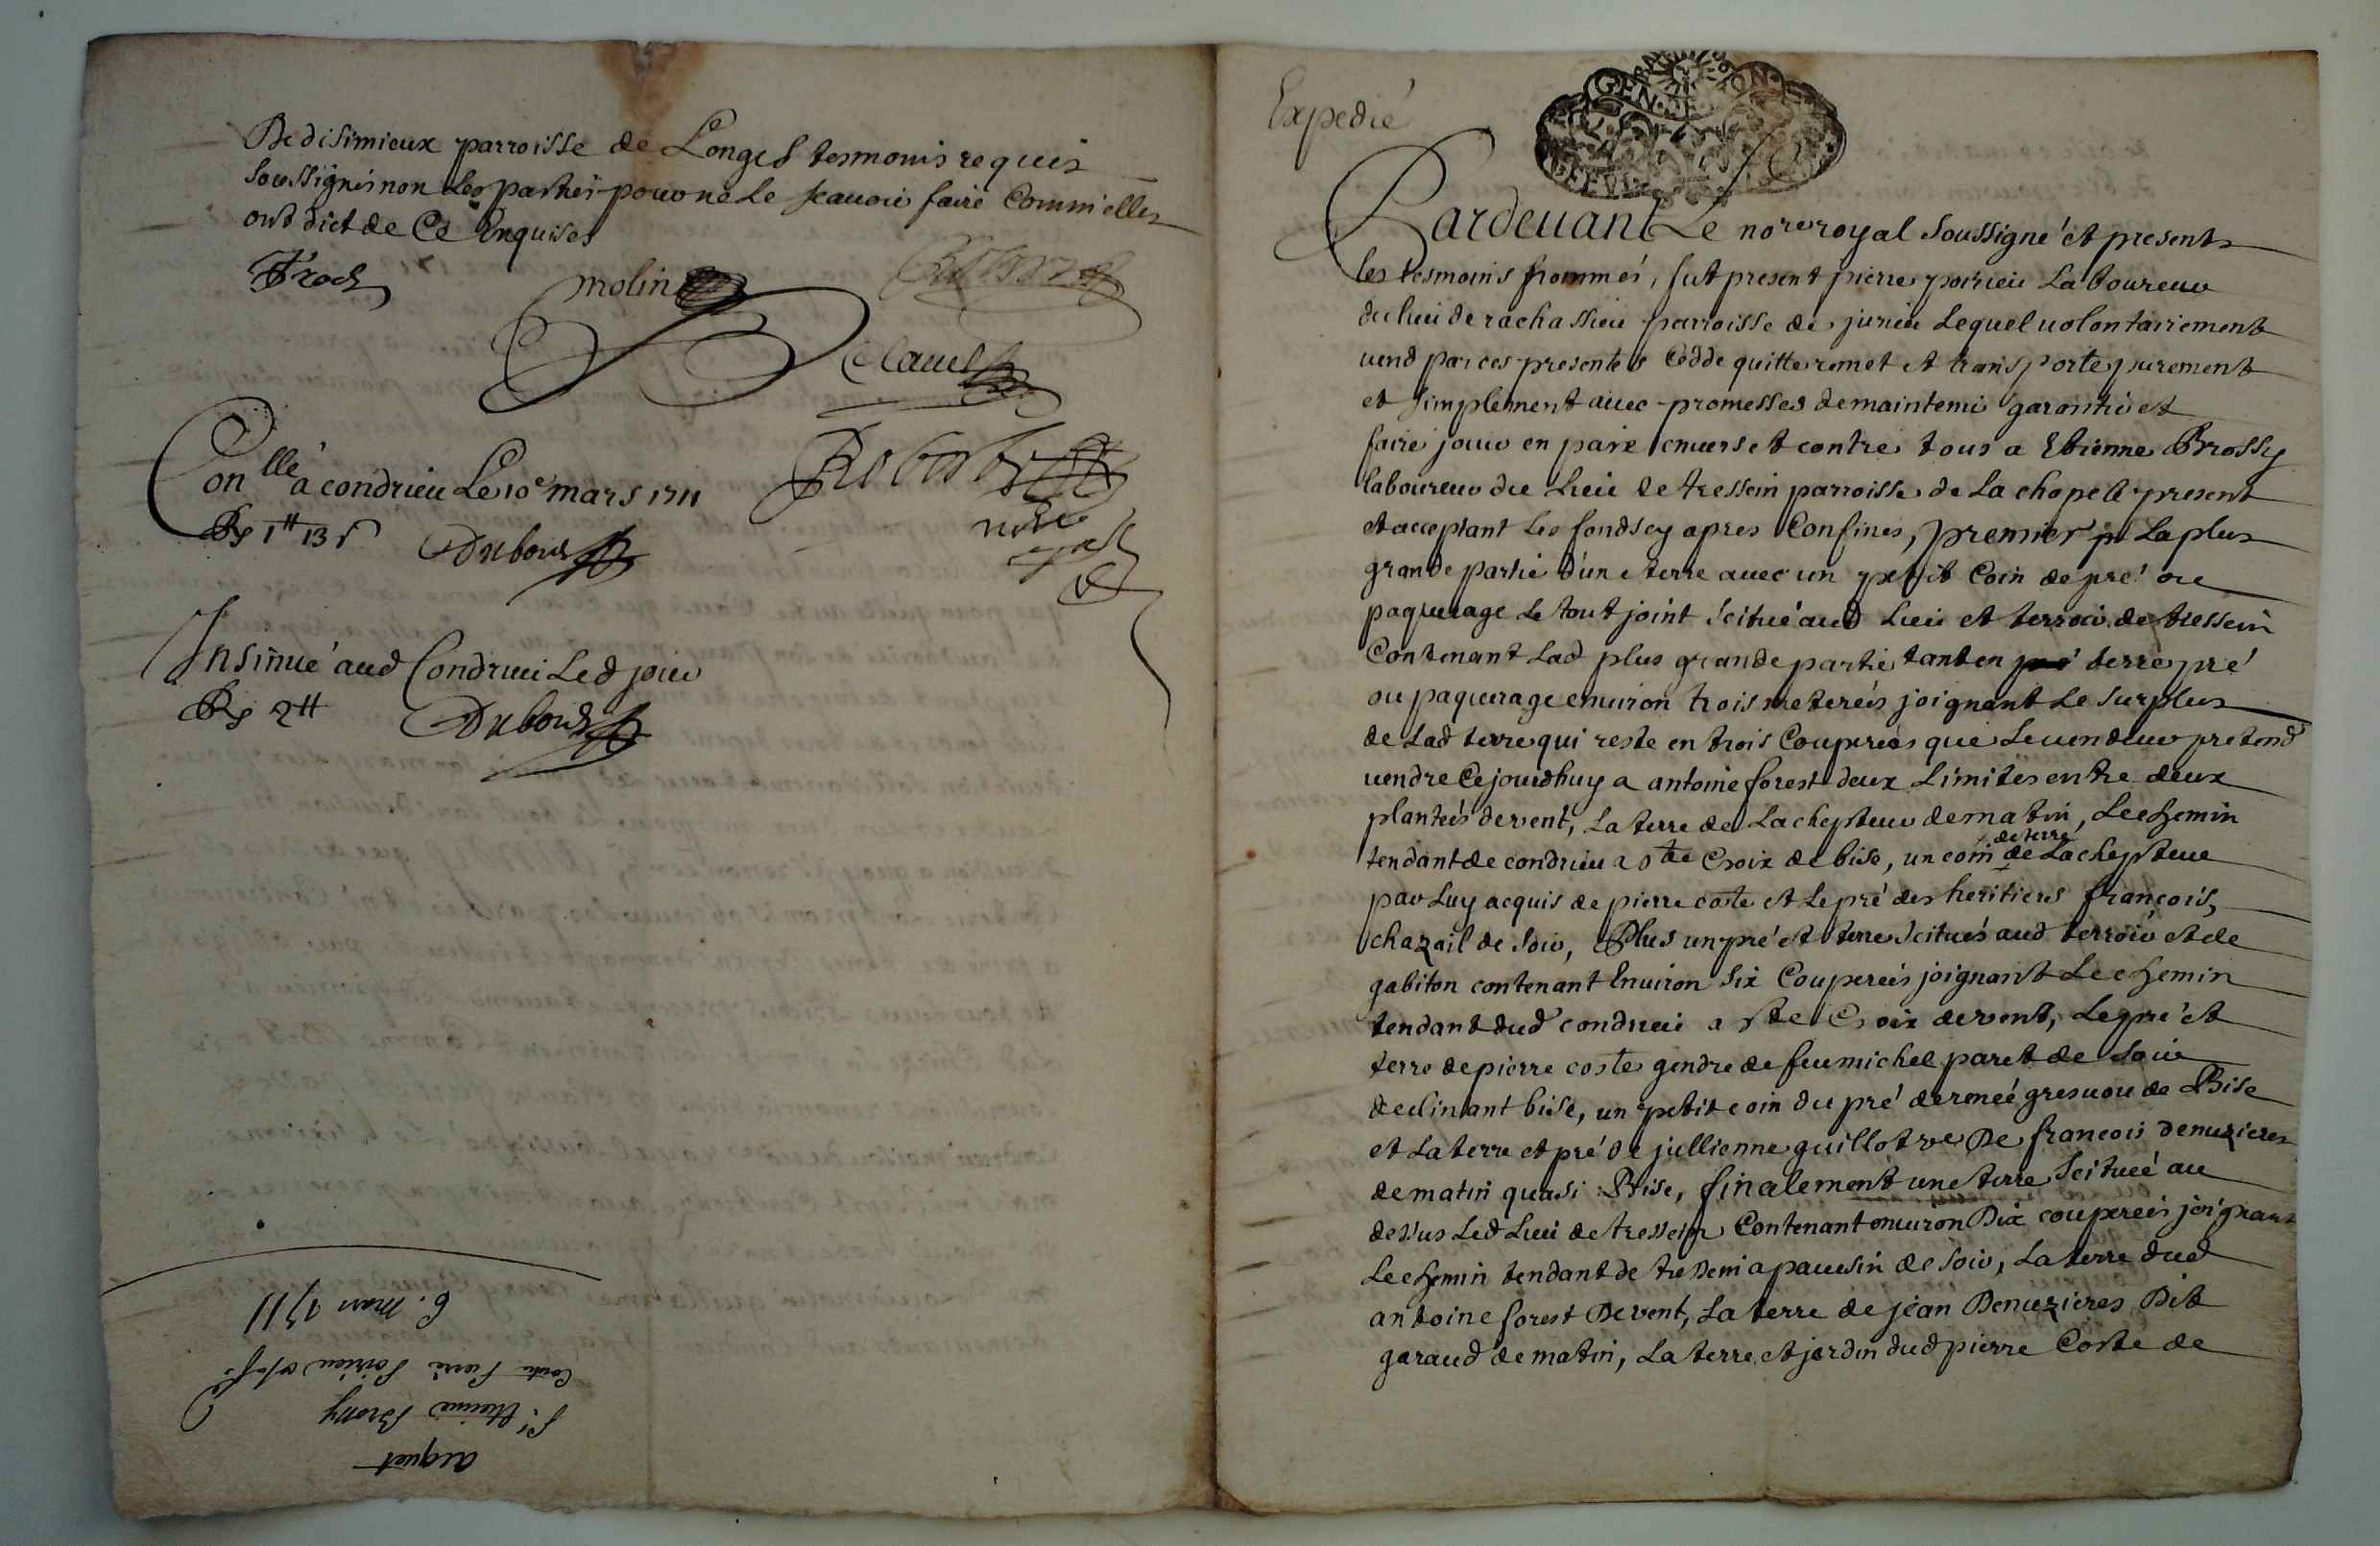 De disimieux parroisse de Longes tesmoins requis
soussignés non les parties pour ne le scauoir faire comm'elles
ont dict de ce enquises
molin
Clauel
Con.llé a condrieu Le 10e mars 1711
Rs 1tt 13s Dubouis
nore
Insinué aud Condrieu Led jour
Rs 2tt Dubouis
acquet
Sr. Etienne Brossy
Contre Pierre Poirieu
6. mars 1711
Expedié
GEN. DE LYON
Pardeuant Le nore royal soussigné et presents
les tesmoins s nommés, fut present pierre poirieu Laboureur
du lieu de rachassieu parroisse de jurieu Lequel uolontairement
uend par ces presentes cedde quitte remet et transporte purement
et simplement auec promesses de maintenir garantir et
faire jouir en paix enuers et contre tous a Etienne Brossy
laboureur du Lieu de tressein parroisse de La chapelle present
et acceptant Les fonds cy apres Confinés, premier La plus
grande partie d'une terre auec un petit Coin de pré ou
paquerage Le tout joint scitué aud Lieu et terroir de tressein
Contenant Lad plus grande partie tant en terre pré
ou paquerage enuiron trois meterées joignant Le surplus
de Lad terre qui reste en trois Couperées que Le uendeur pretend
uendre Cejourdhuy a antoine forest deux Limites entre deux
plantées de vent, La terre de Lachepteur de matin, Le chemin
tendant de condrieu a ste Croix de bise, un coin de terre de Lachepteur
par Luy acquis de pierre coste et Le pré des heritiers françois
chazail de soir, Plus un pré et terre scitués aud terroir et de
gabiton contenant Enuiron six Couperées joignant Le chemin
tendant dud condrieu a ste Croix de vent, Le pré et
terre de pierre coste gendre de feu michel paret de soir
declinant bise, un petit coin du pré de reneé gresuou de Bise
et La terre et pré de jullienne guillot ve De francois denuzieres
de matin quasi Bise, finalement une terre scitueé au
dessus Led Lieu de tressein Contenant enuiron Dix couperées joignant
Le chemin tendant de tressein a pauesin de soir, La terre dud
antoine forest De vent, La terre de jean Denuzieres Dit
garaud de matin, La terre et jardin dud pierre Coste de